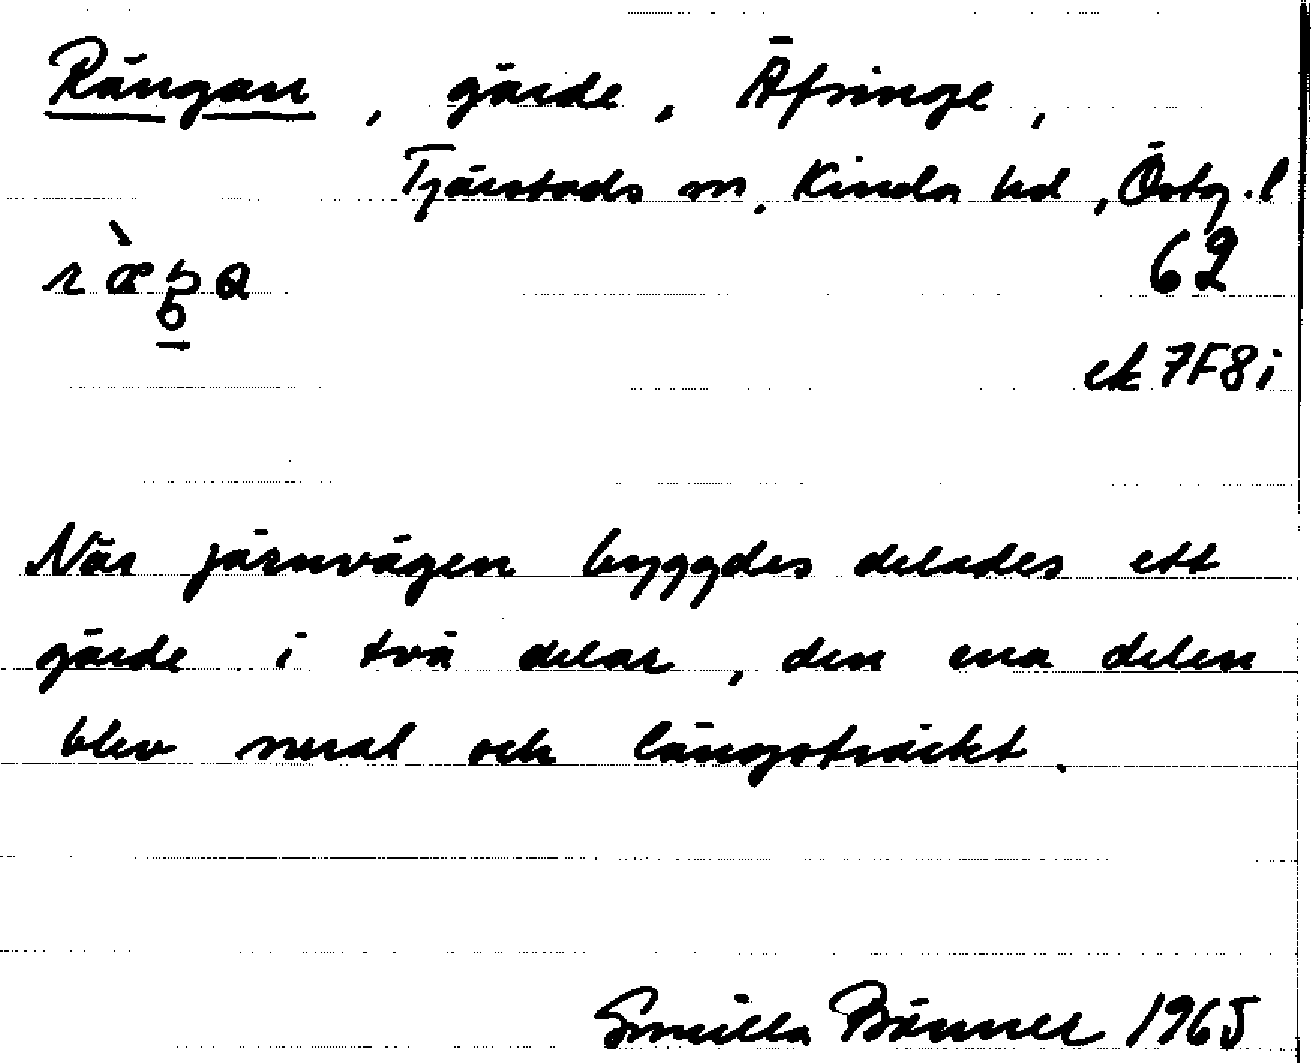 Rängan, gärde, Äfringe,
Tjärstads sn, Kinda hd, Östg. l
62
ek 7F8i
När järnvägen byggdes delades ett
gärde i två delar, den ena delen
blev smal och långsträckt.
Gunilla Bänner 1965